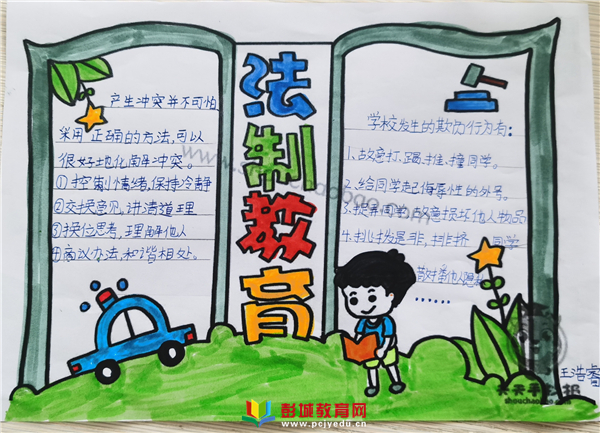 法制教育
产生冲突并不可怕
采用正确的方法,可以
很好地化解冲突。
①控制情绪,保持冷静
②交换意见,讲清道理
③换位思考,理解他人
④商议办法,和谐相处。
学校发生的欺伤行为有:
1、故意打、踢、推、撞同学。
2、给同学起侮辱性的外号。
3、损弄同学,故意损坏他人物品
4、挑拨是非,排挤 同学
他人隐私
......
王浩睿
天天手抄报
彭城教育网
www.pcjyedu.cn